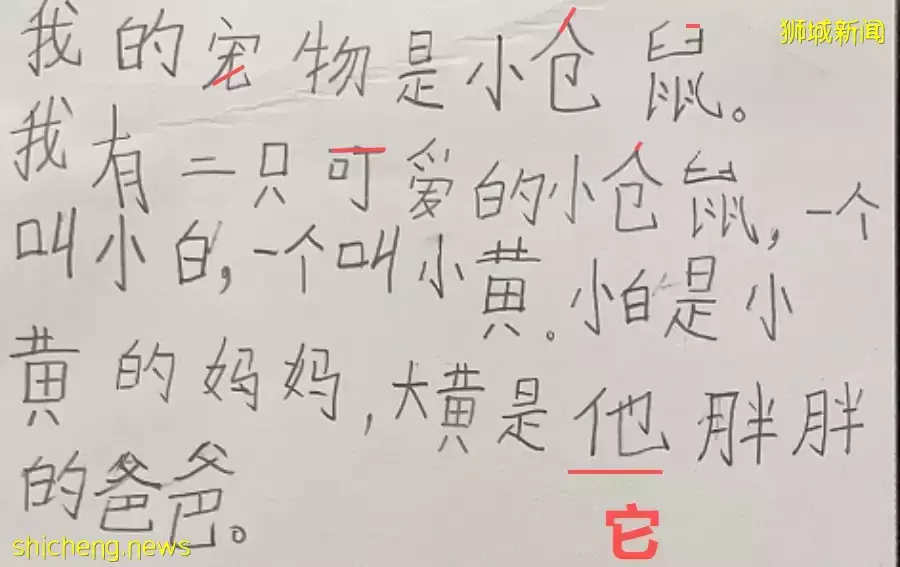 狮城新闻
我的宠物是小仓鼠。
我有二只可爱的小仓鼠，一个
叫小白，一个叫小黄。小白是小
黄的妈妈，大黄是他胖胖
的爸爸。
它
shicheng.news